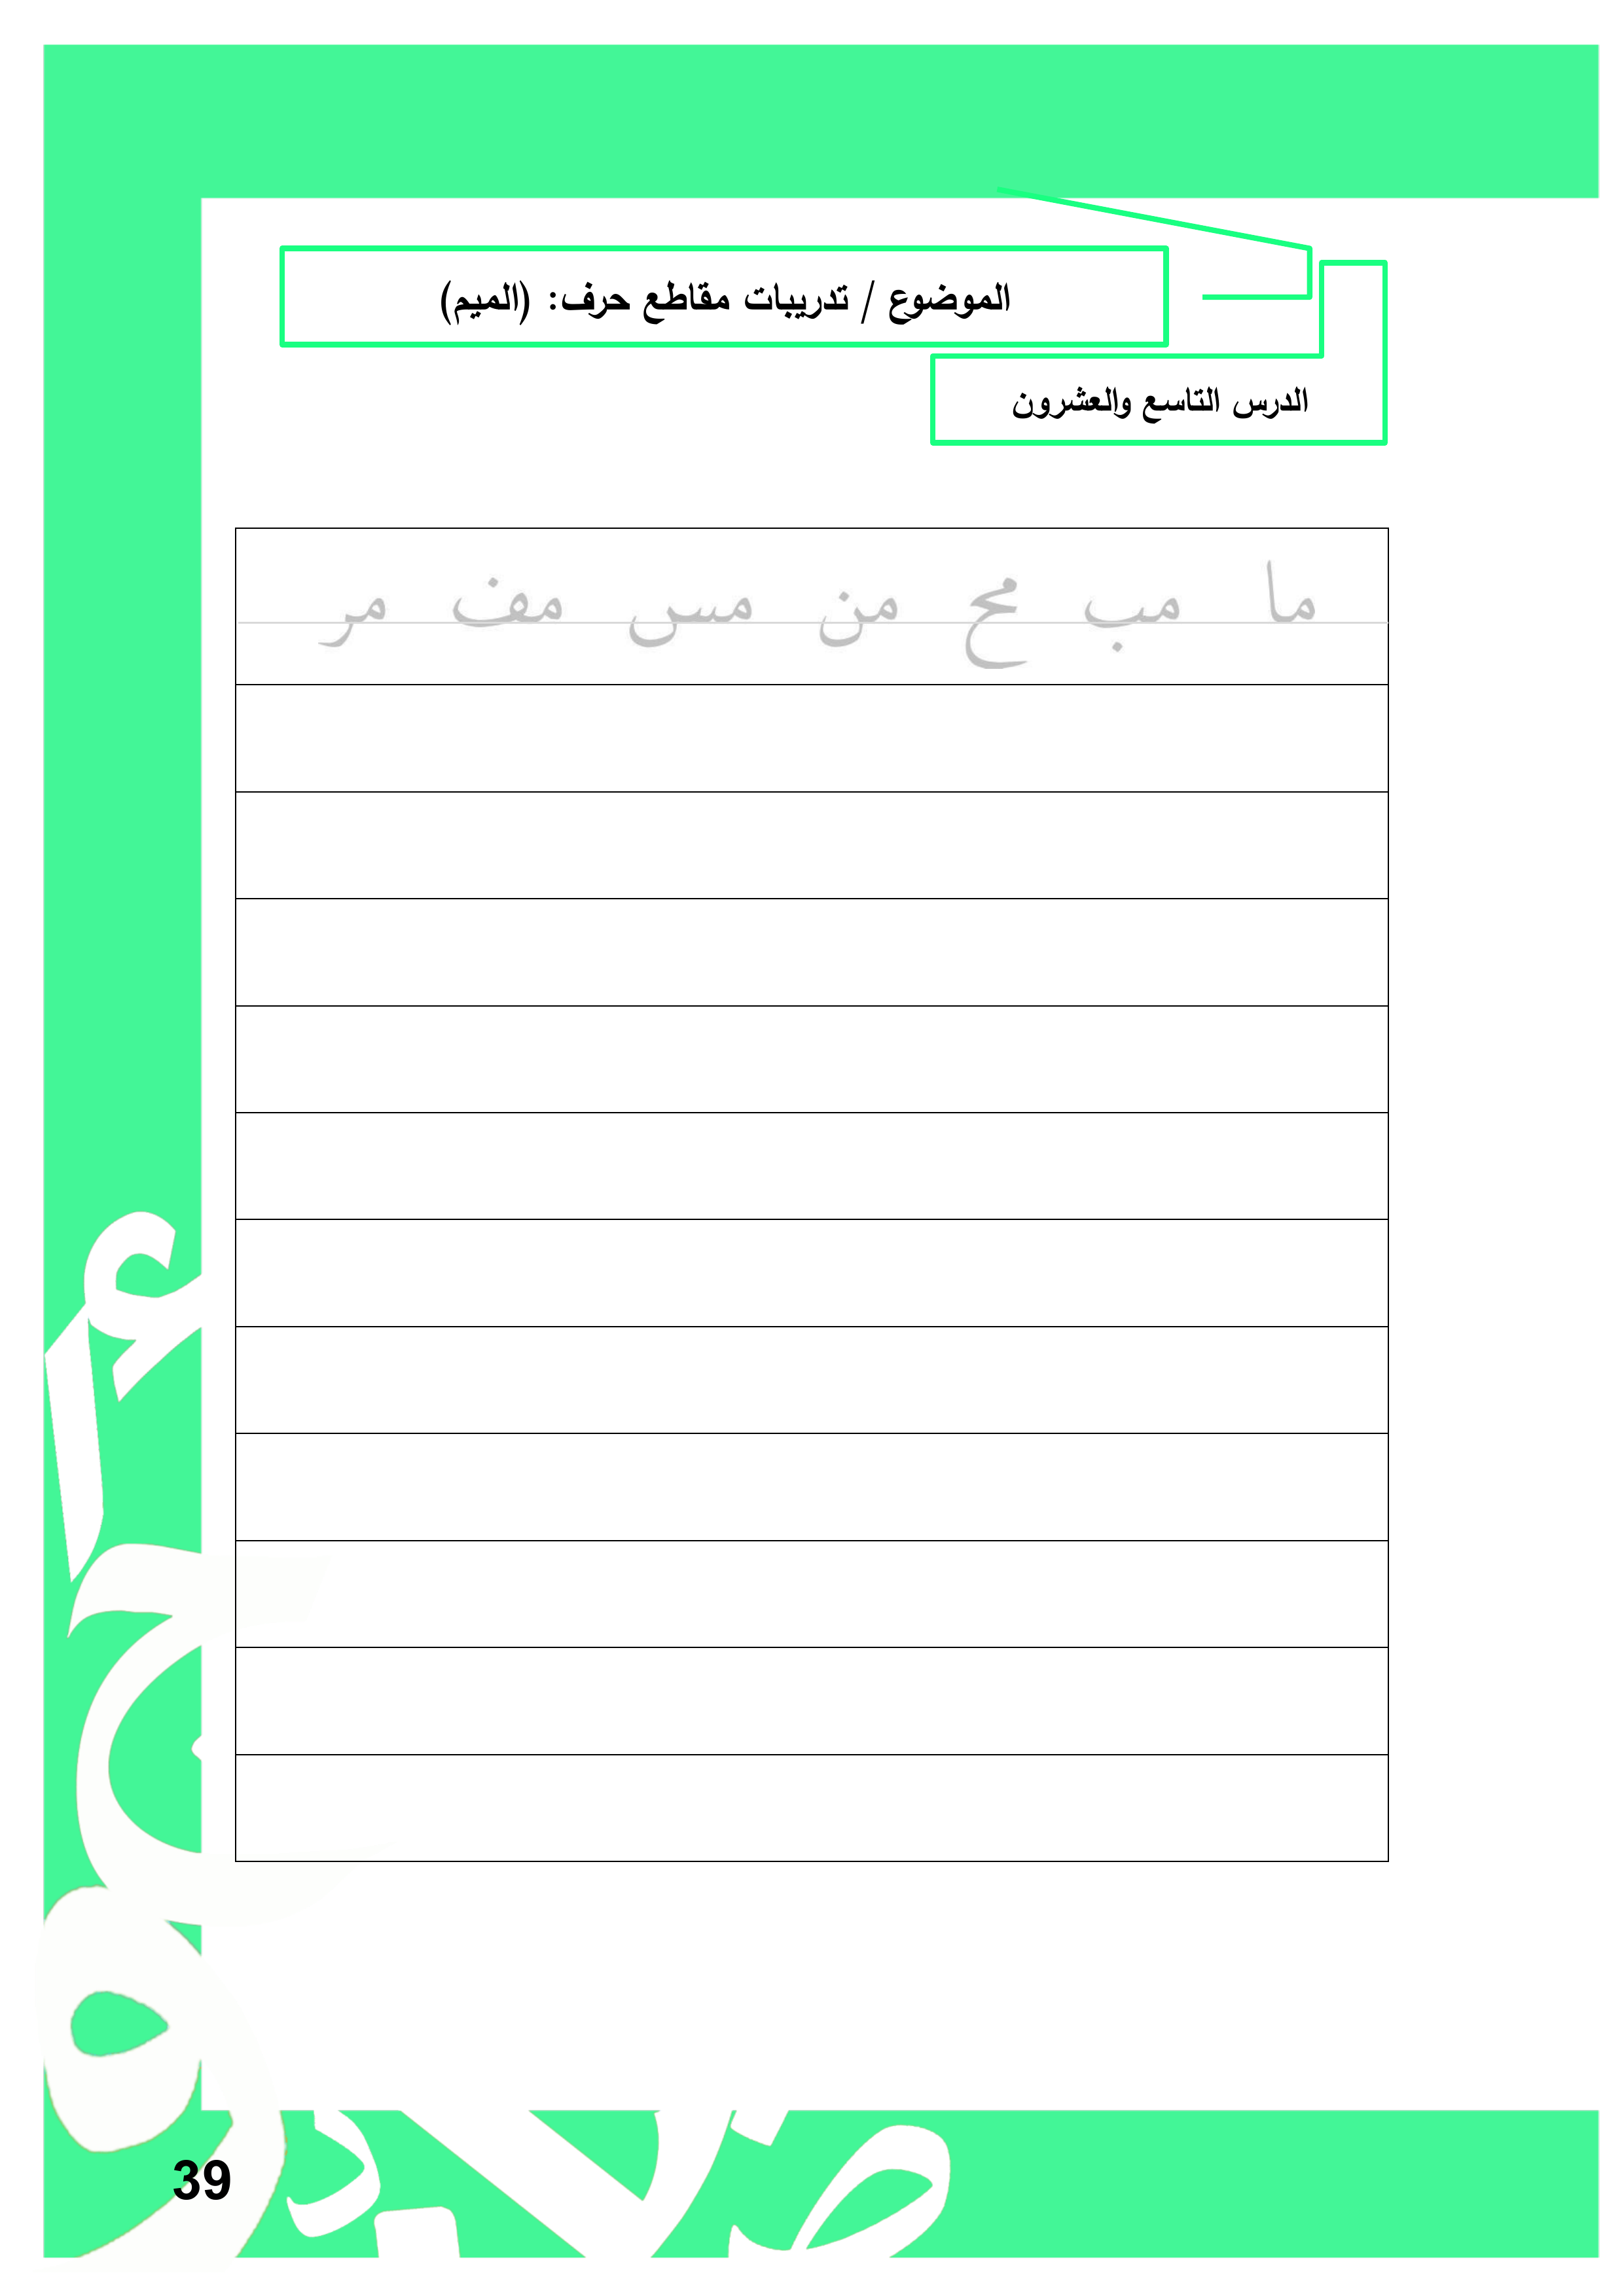 الموضوع / تدريبات مقاطع حرف: (الميم)
الدرس التاسع والعشرون
ما مب مح من مس مف مر
39